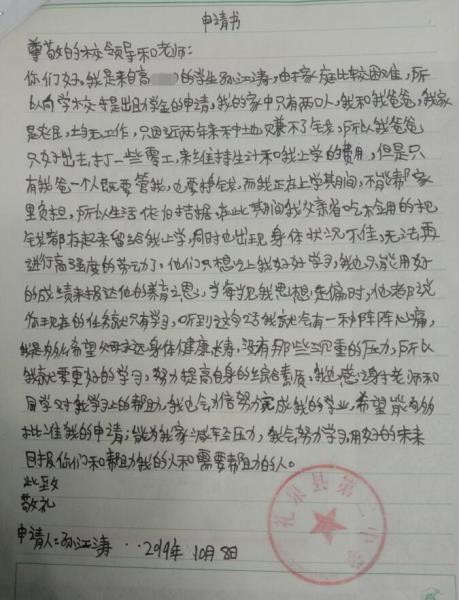 申请书
尊敬的校领导和老师:
你们好。我是来自高 的学生孙江涛,由于家庭比较困难,所
以向学校提出助学金的申请,我的家中只有两口人,我和我爸爸,我家
是农民,均无工作,只因近两年来种地赚不了钱,所以我爸爸
只好出去打一些零工,来维持生计和我上学的费用,但是只
有我爸一个人既要管我,也要挣钱,而我正在上学其间,不能帮家
里负担,所以生活依旧拮据,在此其间我父亲省吃不舍用的把
钱都存起来留给我上学,同时也出现身体状况不佳,无法再
进行高强度的劳动了,他们只想让我好好学习,我也只能用好
的成绩来报达他的养育之恩,当每当我思想走偏时,他都说
你现在的任务就只有学习,听到这句话我就会有一种阵阵心痛,
我是多么希望父母永远身体健康长寿,没有那些沉重的压力,所以
我就要更好的学习,努力提高自身的综合素质,我也感谢身边老师和
同学对我学习上的帮助,我也会加倍努力完成我的学业,希望能有够
批准我的申请;能为我家减轻压力,我会努力学习,用好的未来
回报你们和帮助我的人和需要帮助的人。
此致
敬礼
申请人:孙江涛 ··2019年 10月8日
礼泉县第二中学